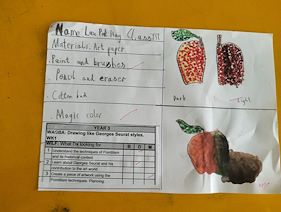 Name Class
Materials: Art paper
Paint and brushes
Pencil and eraser
Cotton bud
Magic color
Dark Light
YEAR 3
WALT/BA: Drawing like Georges Seurat styles.
WK1
WILF: What I'm looking for
1 Understand the techniques of Pointillism and its historical context
2 Learn about Georges Seurat and his contribution to the art world.
3 Create a piece of artwork using the Pointillism techniques. Planning